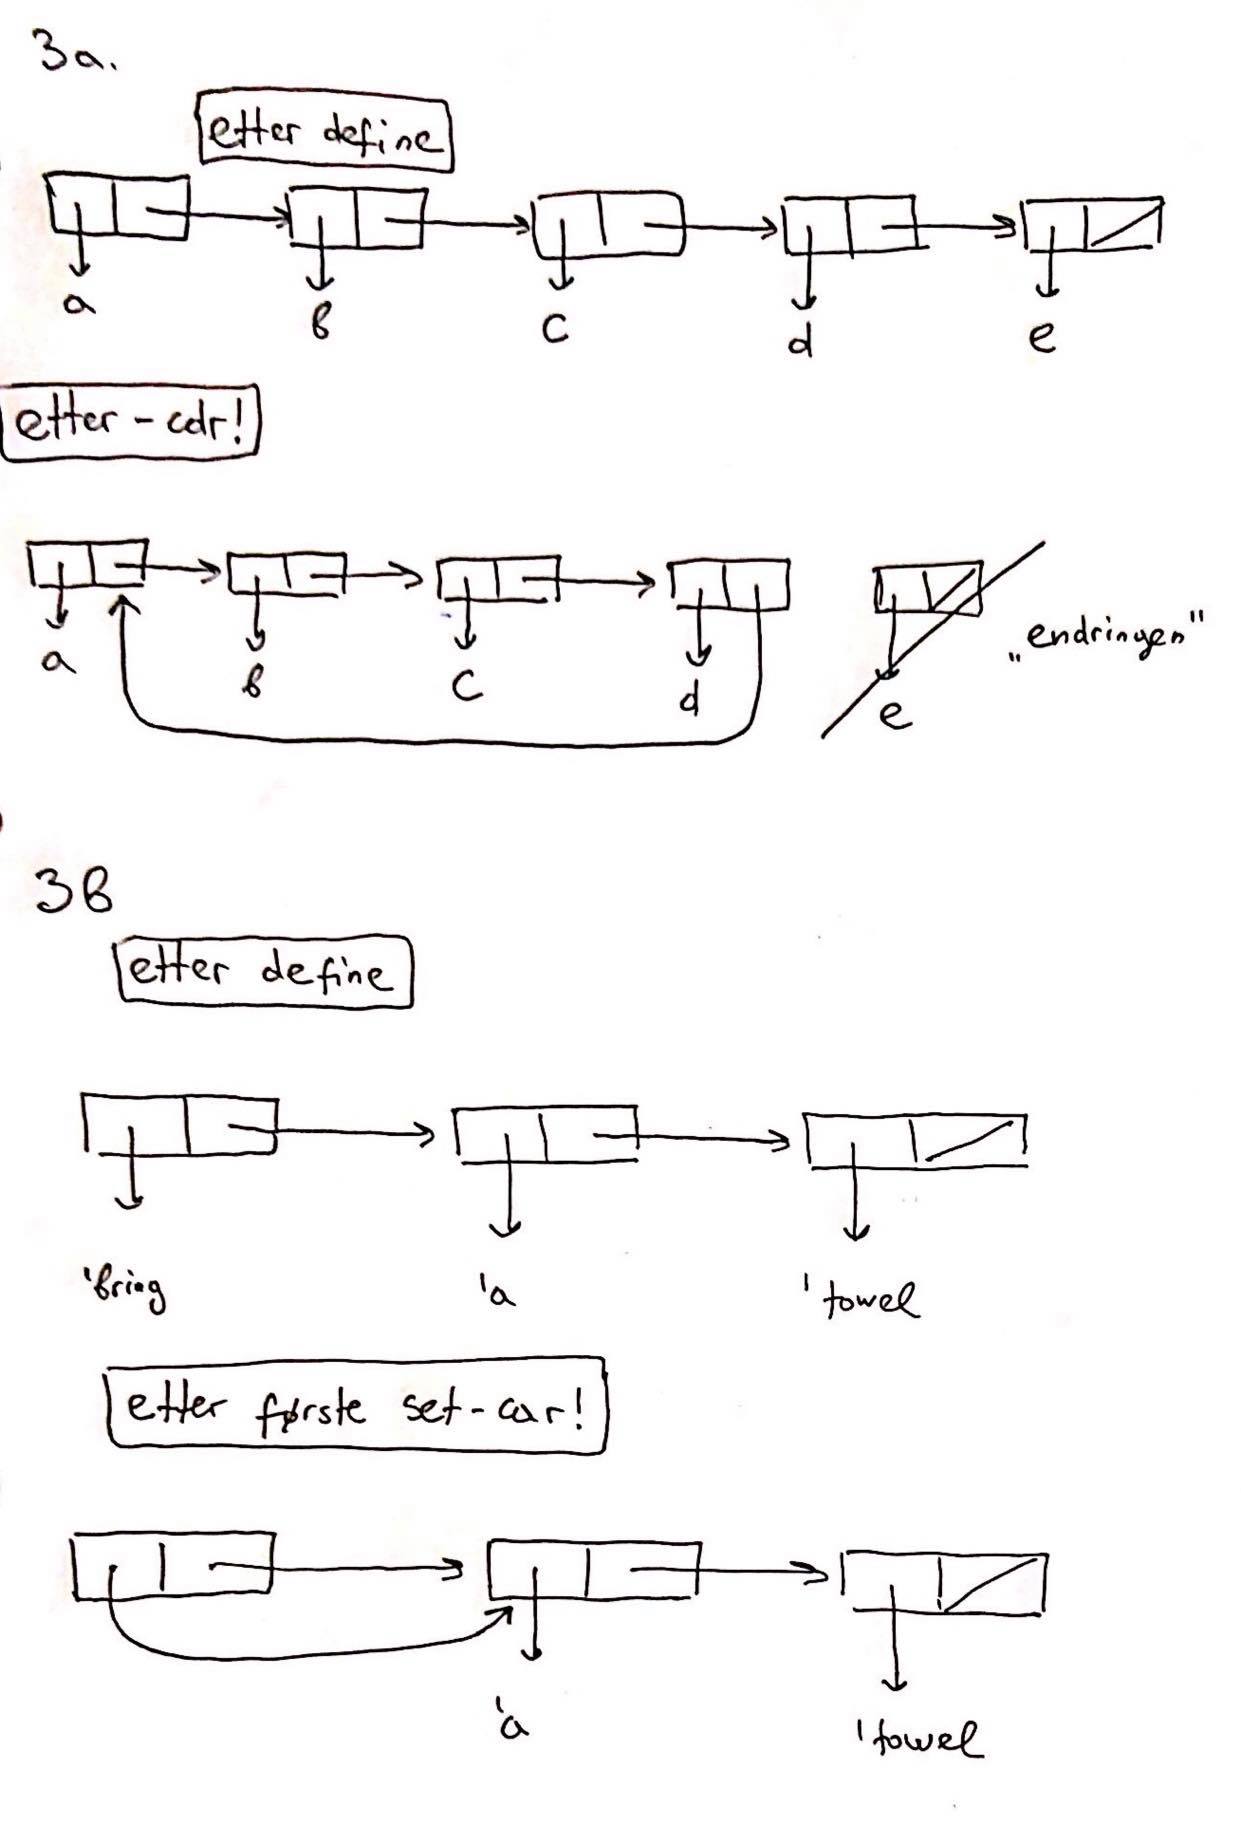 3a.
etter define
a b c d e
etter - cdr!
a b c d e „endringen"
3b
etter define
'bring 'a 'towel
etter første set-car!
'a 'towel